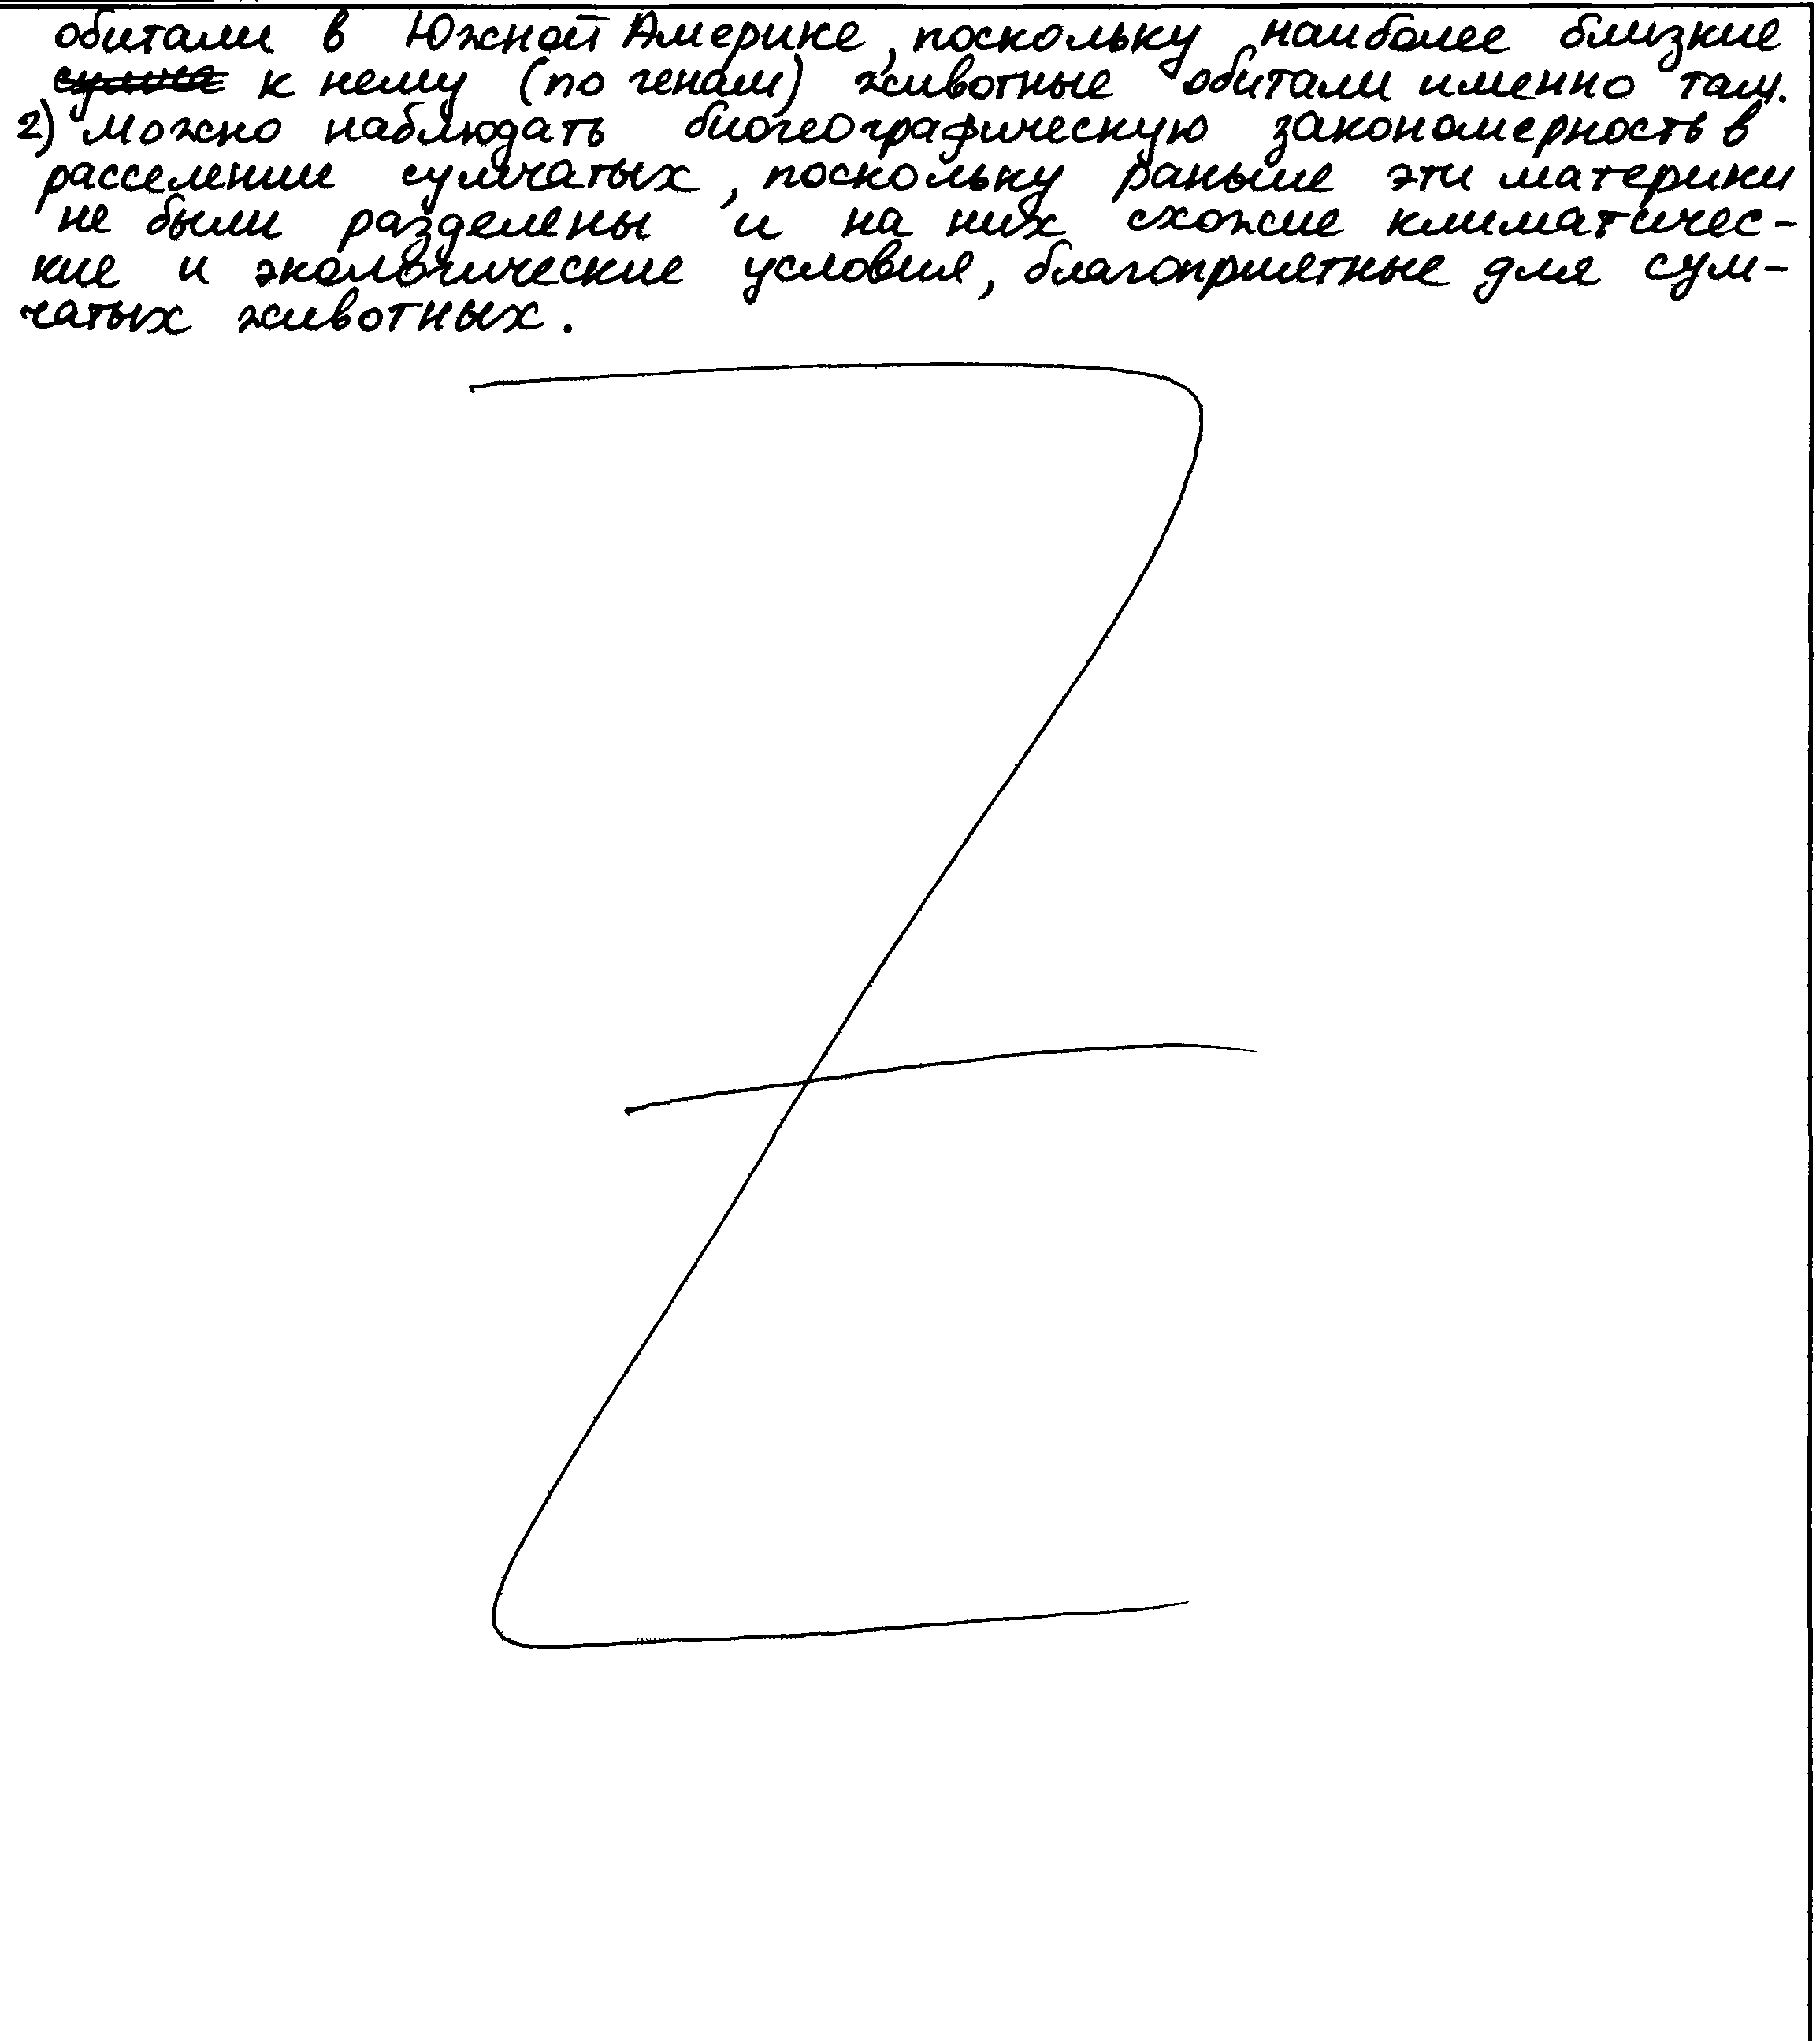 обитали в Южной Америке, поскольку наиболее близкие
к нему (по генам) животные обитали именно там.
2) Можно наблюдать биогеографическую закономерность в
расселении сумчатых, поскольку раньше эти материки
не были разделены и на них схожие климатичес-
кие и экологические условия, благоприятные для сум-
чатых животных.
Z